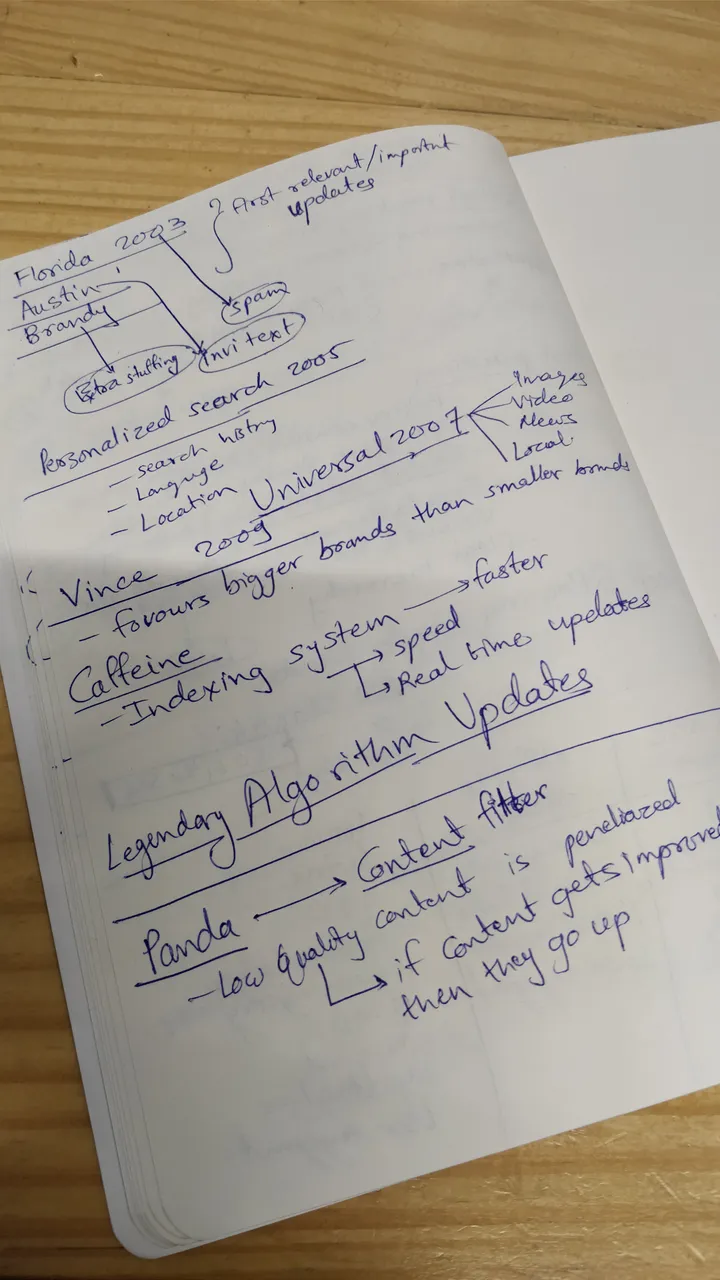 Florida 2003 } First relevant/important
updates
Austin
Brandy
spam
Extra stuffing
Invi text
Personalized search 2005
- search histry
- Languge
- Location
Universal 2007
Images
Video
News
Local
Vince 2009
- favours bigger brands than smaller brands
Caffeine
- Indexing system → faster
→ speed
→ Real time updates
Legendary Algorithm Updates
Panda → Content filter
- Low Quality content is peneliazed
→ if content gets improved
then they go up